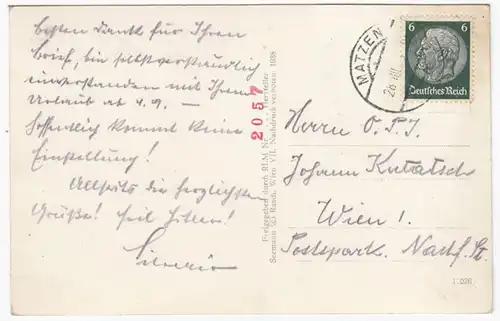 besten Dank für Ihren
Brief, bin selbstverständlich
einverstanden mit Ihrem
Urlaub ab 4.9. –
Hoffentlich kommt keine
Einstellung!
Allseits die herzlichsten
Grüße! Heil Hitler!
2057
Freigegeben durch RLM. Nr. Hersteller 1938
Wien VII. Nachdruck verboten!
MATZEN
6 6
Deutsches Reich
Herrn O.P.I.
Johann
Wien 1.
Postspark. Nachf. St.